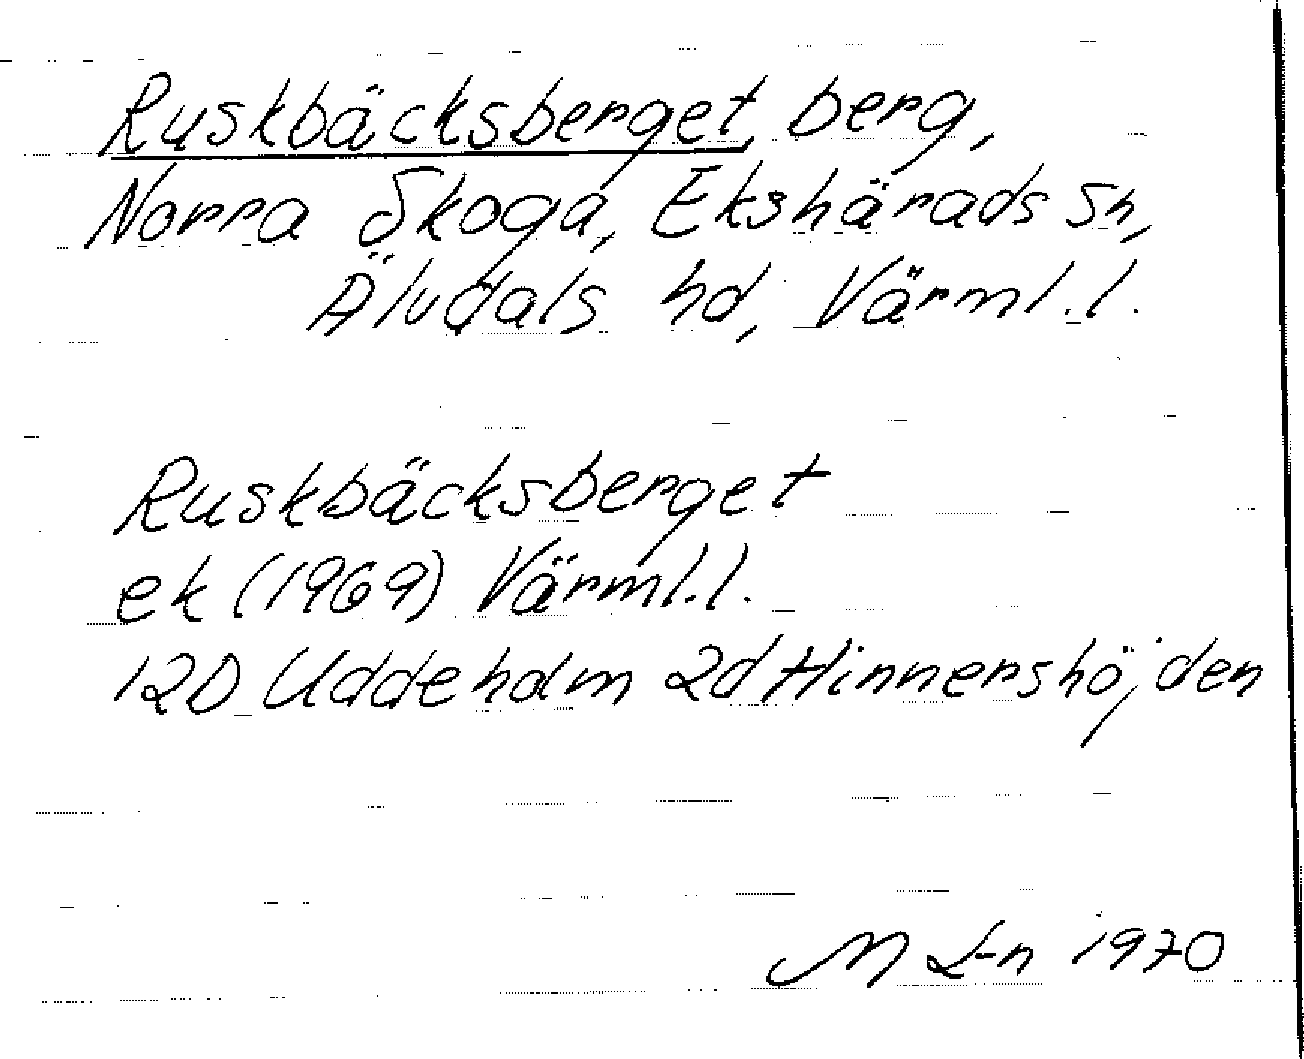 Ruskbäcksberget, berg,
Norra Skoga, Ekshärads sn,
Älvdals hd, Värml.l.
Ruskbäcksberget
ek (1969) Värml.l.
12D Uddeholm 2d Hinnershöjden
M L-n 1970